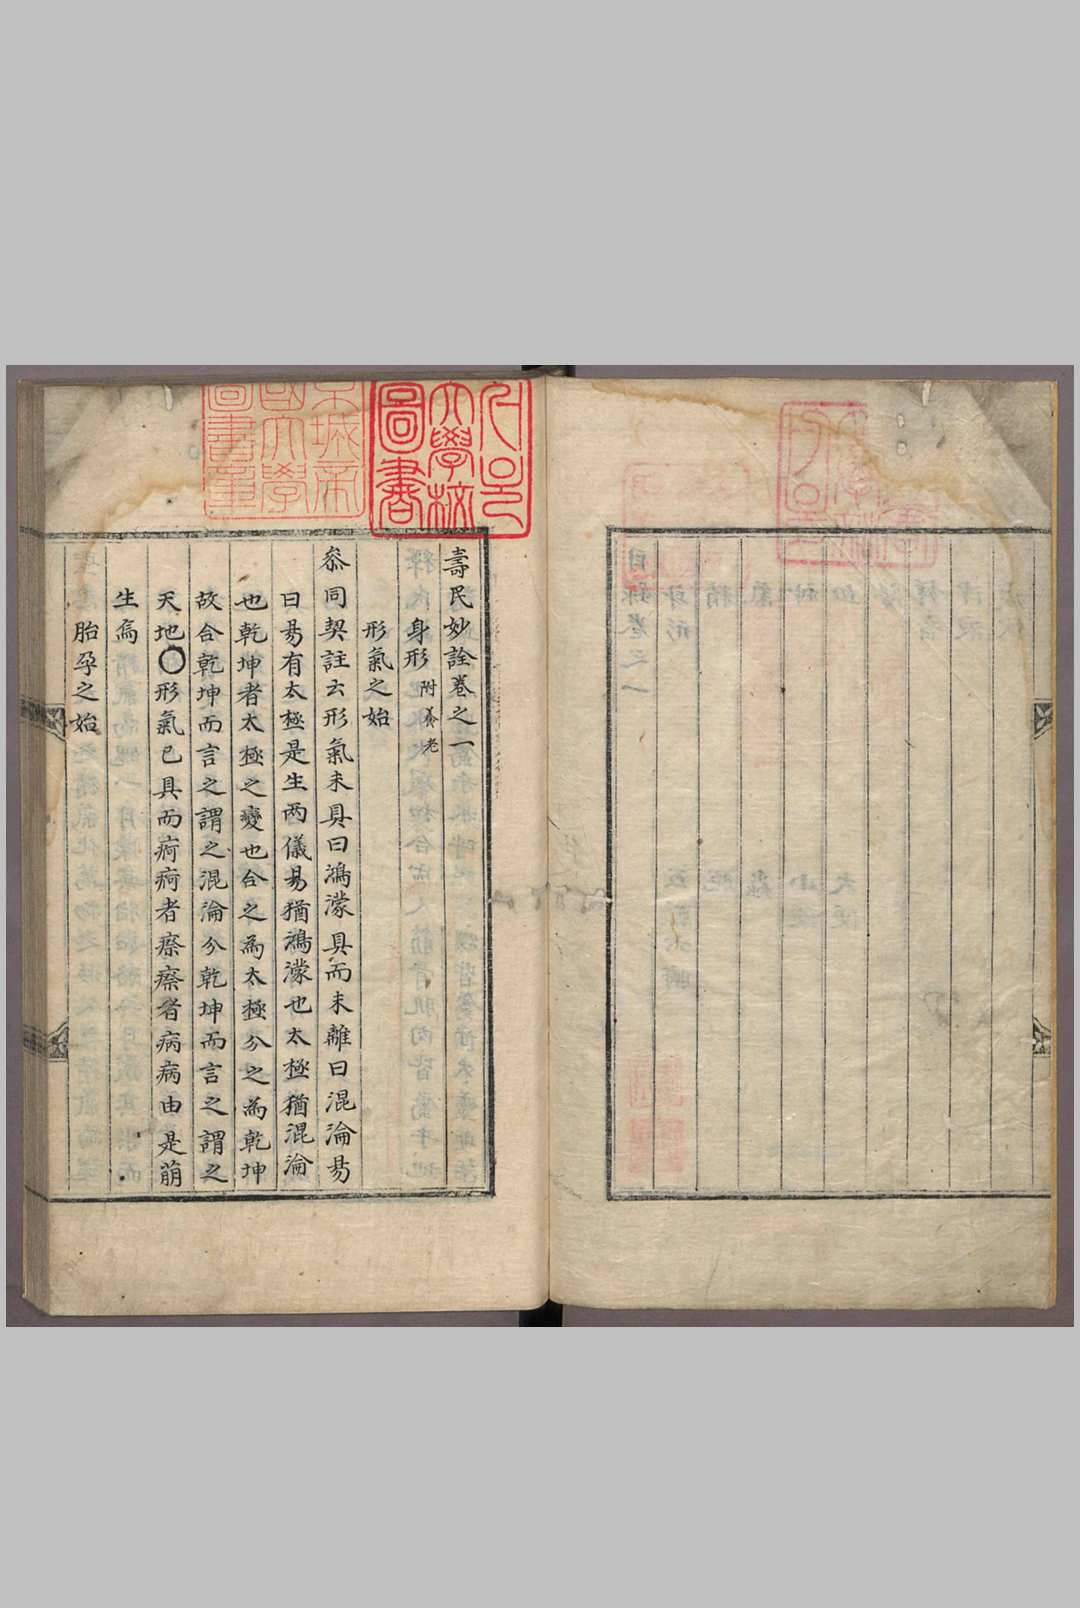 壽民妙詮卷之一
身形 附養老
形氣之始
叅同契註云形氣未具曰鴻濛具而未離曰混淪易
曰易有太極是生兩儀易猶鴻濛也太極猶混淪
也乾坤者太極之變也合之為太極分之為乾坤
故合乾坤而言之謂之混淪分乾坤而言之謂之
天地○形氣已具而痾痾者瘵瘵者病病由是萠
生焉
胎孕之始
大學校
圖書
城帝
國大學
圖書章